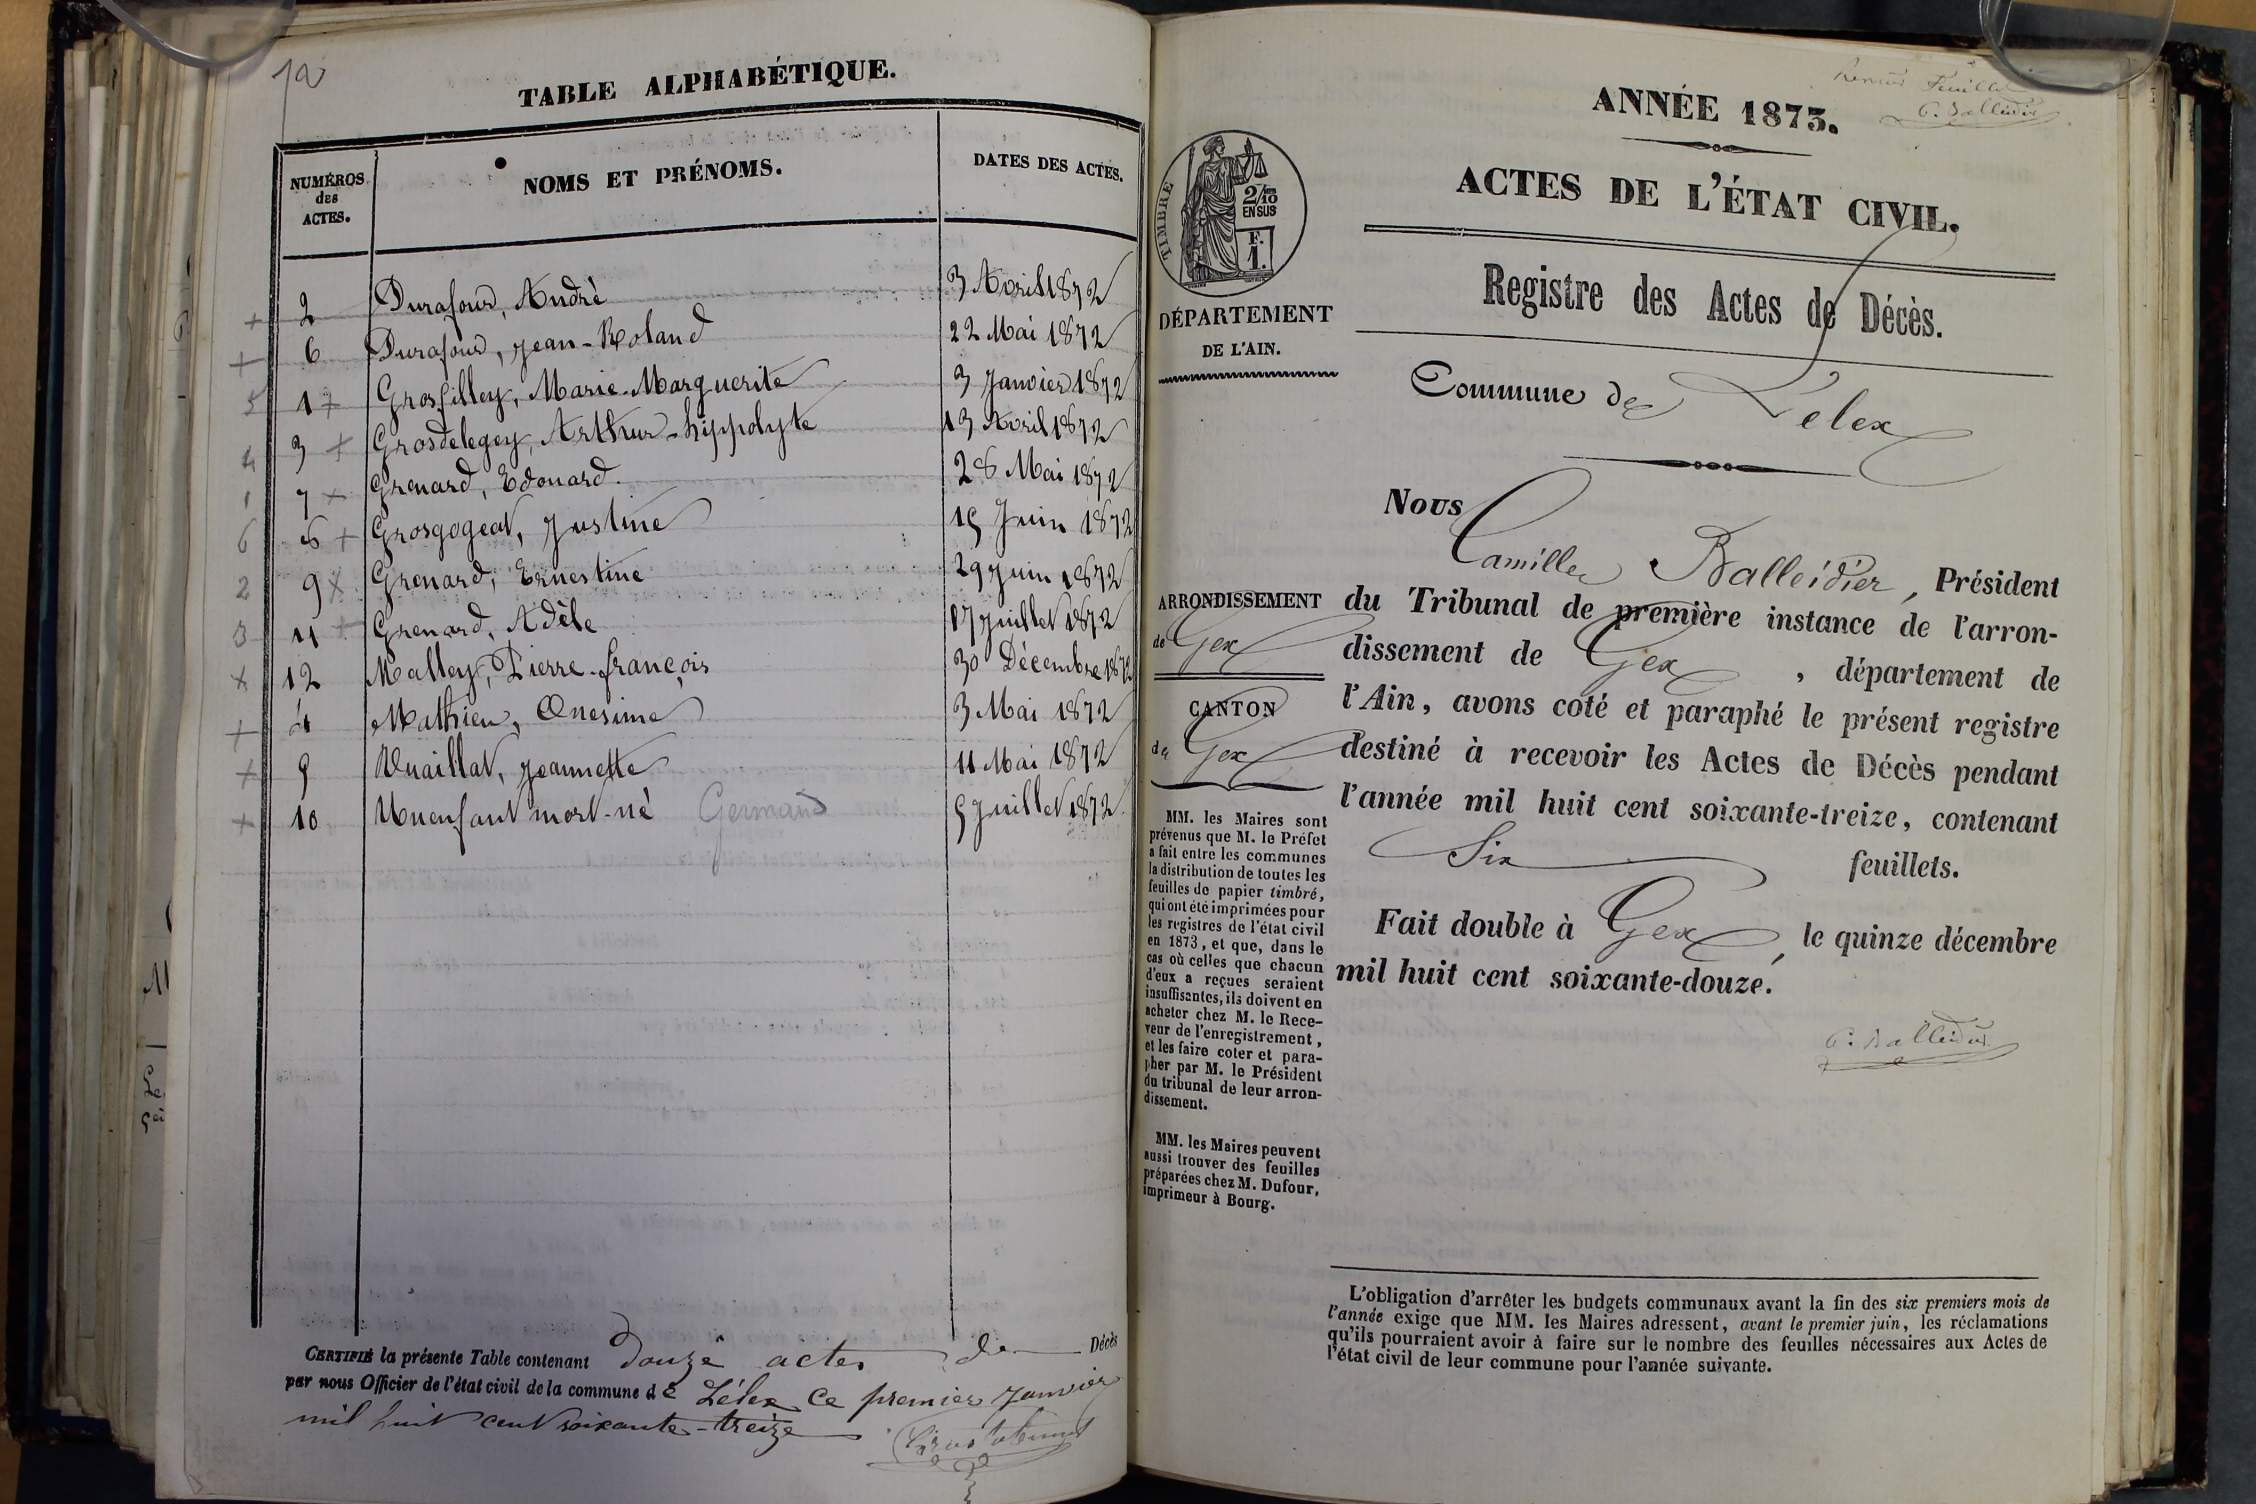 TABLE ALPHABÉTIQUE.
NUMÉROS des ACTES. NOMS ET PRÉNOMS. DATES DES ACTES.
+ 2 Durafour, André 3 Avril 1872
+ 6 Durafour, Jean-Roland 22 Mai 1872
5 1 + Grosfilley, Marie-Marguerite 3 Janvier 1872
4 3 + Grosdelegey, Arthur-hippolyte 13 Avril 1872
1 7 + Grenard, Edouard. 28 Mai 1872
6 8 + Grosgogeat, Justine 15 Juin 1872
2 9 + Grenard, Ernestine 29 Juin 1872
3 11 + Grenard, Adèle 17 Juillet 1872
+ 12 Malley, Pierre-françois 30 Décembre 1872
+ 4 Mathieu, Onesime 3 Mai 1872
+ 5 Vuaillat, Jeannette 11 Mai 1872
+ 10 Un enfant mort-né Germand 5 Juillet 1872
CERTIFIÉ la présente Table contenant douze actes de Décès
par nous Officier de l'état civil de la commune de Lélex ce premier Janvier
mil huit cent soixante-treize
ANNÉE 1873.
ACTES DE L'ÉTAT CIVIL.
Registre des Actes de Décès.
TIMBRE
2/10
EN SUS
F.
1.
DÉPARTEMENT
DE L'AIN.
Commune de Lelex
ARRONDISSEMENT
de Gex
CANTON
de Gex
MM. les Maires sont
prévenus que M. le Préfet
a fait entre les communes
la distribution de toutes les
feuilles de papier timbré,
qui ont été imprimées pour
les registres de l'état civil
en 1873, et que, dans le
cas où celles que chacun
d'eux a reçues seraient
insuffisantes, ils doivent en
acheter chez M. le Rece-
veur de l'enregistrement,
et les faire coter et para-
pher par M. le Président
du tribunal de leur arron-
dissement.
MM. les Maires peuvent
aussi trouver des feuilles
préparées chez M. Dufour,
imprimeur à Bourg.
Nous
Camille Balleidier, Président
du Tribunal de première instance de l'arron-
dissement de Gex, département de
l'Ain, avons coté et paraphé le présent registre
destiné à recevoir les Actes de Décès pendant
l'année mil huit cent soixante-treize, contenant
Six feuillets.
Fait double à Gex, le quinze décembre
mil huit cent soixante-douze.
L'obligation d'arrêter les budgets communaux avant la fin des six premiers mois de
l'année exige que MM. les Maires adressent, avant le premier juin, les réclamations
qu'ils pourraient avoir à faire sur le nombre des feuilles nécessaires aux Actes de
l'état civil de leur commune pour l'année suivante.